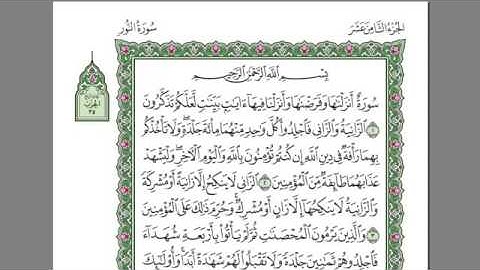 الجزء الثامن عشر
سورة النور
بِسْمِ اللَّهِ الرَّحْمَٰنِ الرَّحِيمِ
سُورَةٌ أَنزَلْنَاهَا وَفَرَضْنَاهَا وَأَنزَلْنَا فِيهَا ءَايَاتٍ بَيِّنَاتٍ لَّعَلَّكُمْ تَذَكَّرُونَ
١ الزَّانِيَةُ وَالزَّانِي فَاجْلِدُوا كُلَّ وَاحِدٍ مِّنْهُمَا مِائَةَ جَلْدَةٍ وَلَا تَأْخُذْكُم
بِهِمَا رَأْفَةٌ فِي دِينِ اللَّهِ إِن كُنتُمْ تُؤْمِنُونَ بِاللَّهِ وَالْيَوْمِ الْآخِرِ وَلْيَشْهَدْ
عَذَابَهُمَا طَائِفَةٌ مِّنَ الْمُؤْمِنِينَ ٢ الزَّانِي لَا يَنكِحُ إِلَّا زَانِيَةً أَوْ مُشْرِكَةً
وَالزَّانِيَةُ لَا يَنكِحُهَا إِلَّا زَانٍ أَوْ مُشْرِكٌ وَحُرِّمَ ذَٰلِكَ عَلَى الْمُؤْمِنِينَ
٣ وَالَّذِينَ يَرْمُونَ الْمُحْصَنَاتِ ثُمَّ لَمْ يَأْتُوا بِأَرْبَعَةِ شُهَدَاءَ
فَاجْلِدُوهُمْ ثَمَانِينَ جَلْدَةً وَلَا تَقْبَلُوا لَهُمْ شَهَادَةً أَبَدًا وَأُولَٰئِكَ